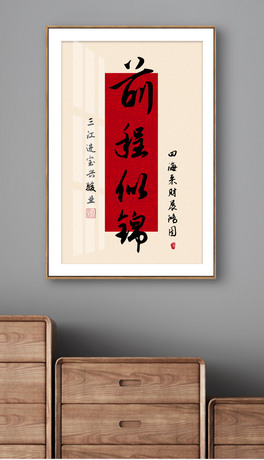 四海来财展鸿图
前程似锦
三江进宝兴骏业